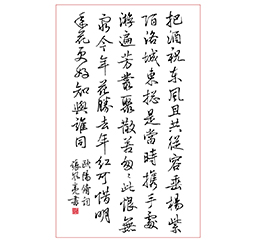 把酒祝东风且共從容垂楊紫
陌洛城東捴是當時攜手處
游遍芳叢聚散苦匆匆此恨無
窮今年花勝去年紅可惜明
年花更好知與誰同
歐陽脩詞